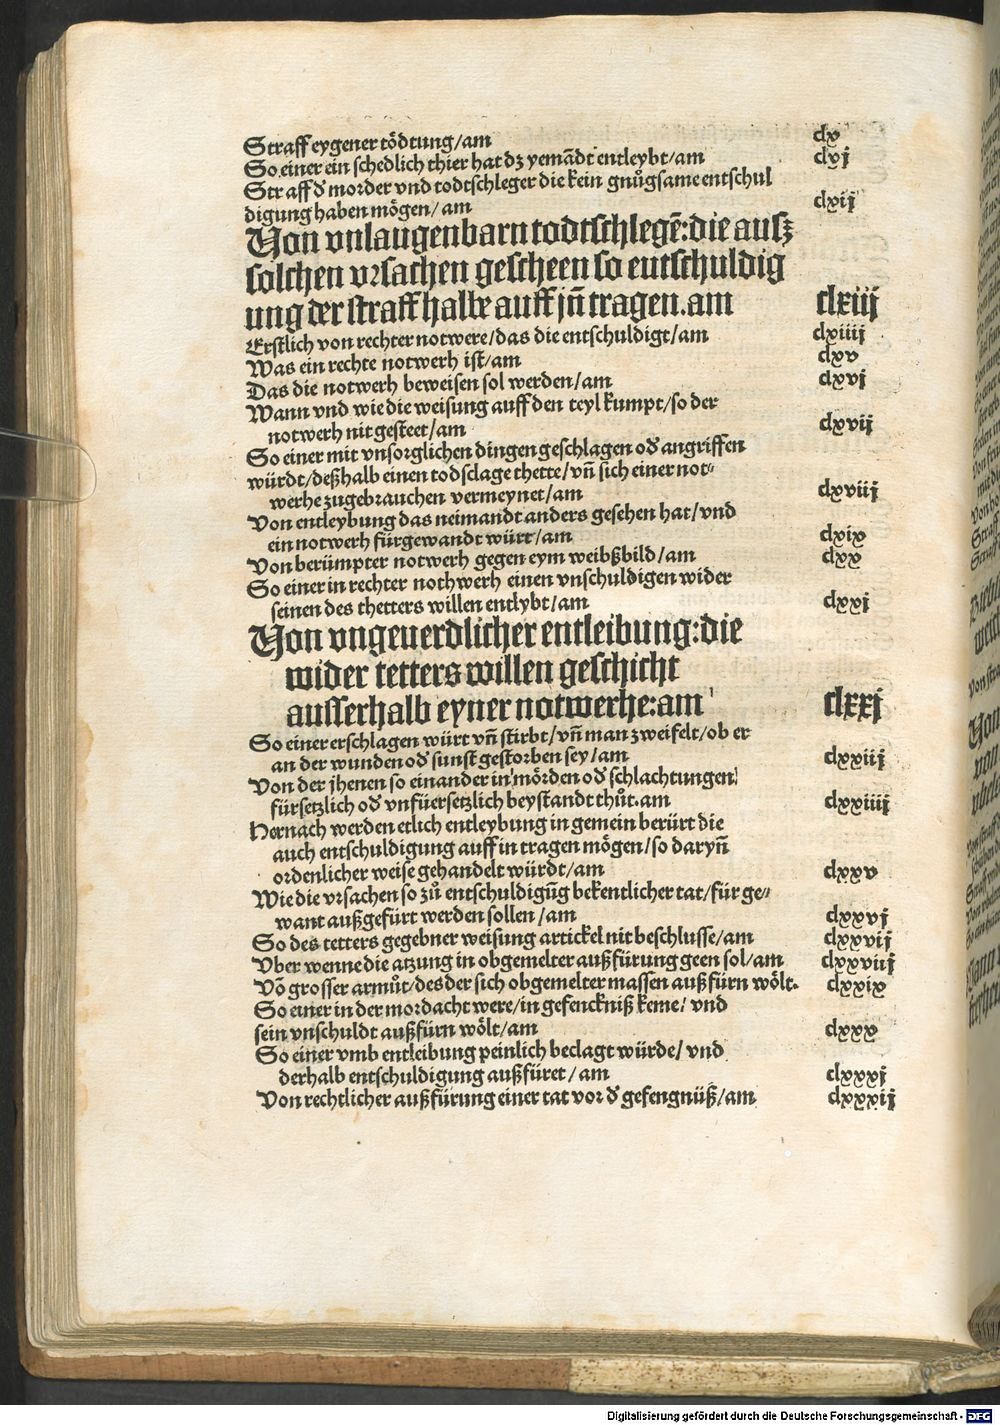 Straff eygener tödtung/am clx
So einer ein schedlich thier hat dz yemãdt entleybt/am clxj
Straff đ morder vnd todtschleger die kein gnůgsame entschul
digung haben mögen/ am clxij
Von vnlaugenbarn todtschlegẽ:die ausz
solchen vrsachen gescheen so entschuldig
ung der straff halbe auff jñ tragen.am clxiij
Erstlich von rechter notwere/das die entschuldigt/am clxiiij
Was ein rechte notwerh ist/am clxv
Das die notwerh beweisen sol werden/am clxvj
Wann vnd wie die weisung auff den teyl kumpt/so der
notwerh nit gesteet/am clxvij
So einer mit vnsorglichen dingen geschlagen ođ angriffen
würdt/deßhalb einen todsclage thette/vñ sich einer not⸗
werhe zugebrauchen vermeynet/am clxviij
Von entleybung das neimandt anders gesehen hat/vnd
ein notwerh fürgewandt würt/am clxix
Von berümpter notwerh gegen eym weibßbild/am clxx
So einer in rechter nothwerh einen vnschuldigen wider
seinen des thetters willen entlybt/am clxxj
Von vngeuerdlicher entleibung:die
wider tetters willen geschicht
ausserhalb eyner notwerhe:am clxxj
So einer erschlagen würt vñ stirbt/vñ man zweifelt/ob er
an der wunden ođ sunst gestorben sey/am clxxiij
Von der jhenen so einander in mörden ođ schlachtungen
fürsetzlich ođ vnfüersetzlich beystandt thůt.am clxxiiij
Hernach werden etlich entleybung in gemein berürt die
auch entschuldigung auff in tragen mögen/so daryñ
ordenlicher weise gehandelt würdt/am clxxv
Wie die vrsachen so zů entschuldigũg bekentlicher tat/für ge⸗
want außgefürt werden sollen/am clxxvj
So des tetters gegebner weisung artickel nit beschlusse/am clxxvij
Vber wenne die atzung in obgemelter außfürung geen sol/am clxxviij
Võ grosser armůt/des der sich obgemelter massen außfürn wölt. clxxix
So einer in der mordacht were/in gefenckniß keme/ vnd
sein vnschuldt außfürn wölt/am clxxx
So einer vmb entleibung peinlich beclagt würde/ vnd
derhalb entschuldigung außfüret/am clxxxj
Von rechtlicher außfürung einer tat vor đ gefengnüß/am clxxxij
Digitalisierung gefördert durch die Deutsche Forschungsgemeinschaft - DFG